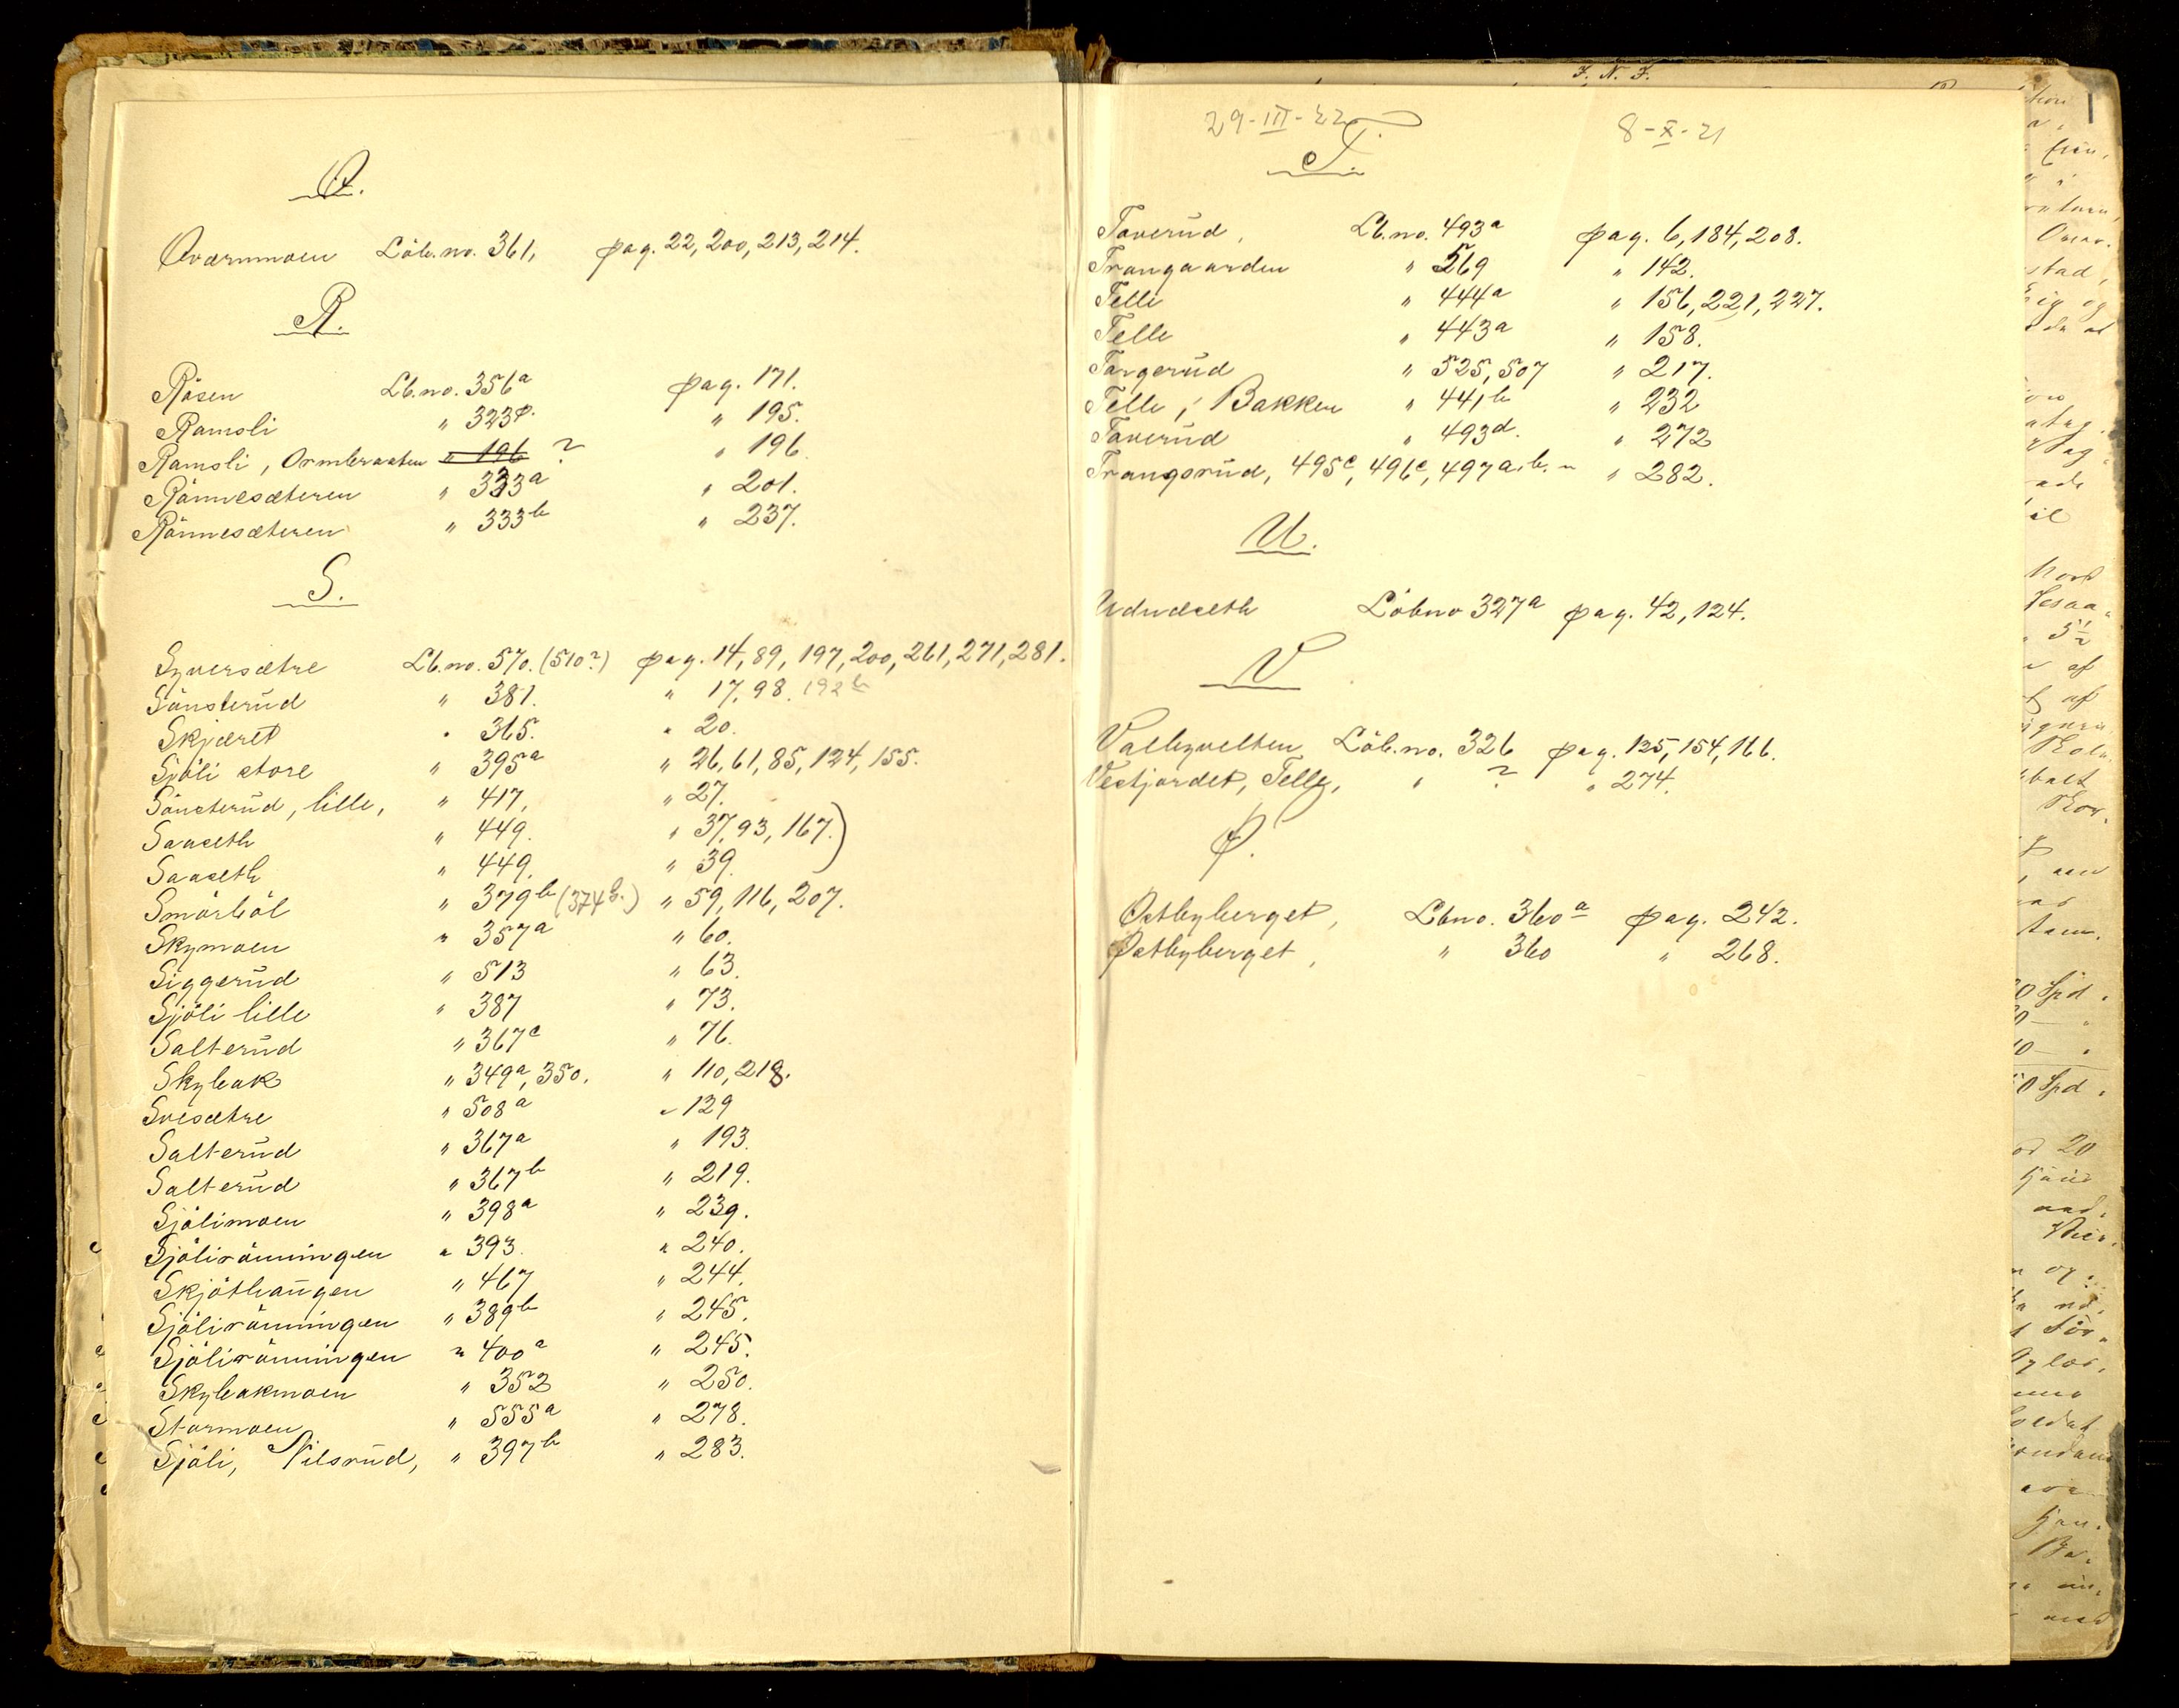 Q.
Qværnmoen Löb.no. 361, pag. 22, 200, 213, 214.
R.
Råsen Lb.no. 356a pag. 171.
Ramsli " 323p. " 195.
Ramsli, Ormbraaten " 196 ? " 196.
Rönnesæteren " 333a " 201.
Rönnesæteren " 333b " 237.
S.
Syversætre Lb.no. 570. (510?) pag. 14, 89, 197, 200, 261, 271, 281.
Sönsterud " 381. " 17, 98. 192b
Skjæret " 365. " 20.
Sjöli store " 395a " 26, 61, 85, 124, 155.
Sönsterud, lille, " 417, " 27.
Saaseth " 449. " 37, 93, 167.)
Saaseth " 449. " 39.
Smörhöl " 379b (374b.) " 59, 116, 207.
Skymoen " 357a " 60.
Siggerud " 513 " 63.
Sjöli lille " 387 " 73.
Salterud " 367c " 76.
Skybak " 349a, 350. " 110, 218.
Svesætre " 508a " 129
Salterud " 367a " 193.
Salterud " 367b " 219.
Sjölimoen " 398a " 239.
Sjölirönningen " 393. " 240.
Skjöthaugen " 467 " 244.
Sjölirönningen " 389b " 245.
Sjölirönningen " 400a " 245.
Skybakmoen " 352 " 250.
Stormoen " 555a " 278.
Sjöli, Nilsrud, " 397b " 283.
F. N. F.
29-III-22 8-X-21
T.
Taverud, Lb.no. 493a pag. 6, 184, 208.
Trangaarden " 569 " 142.
Telle " 444a " 156, 221, 227.
Telle " 443a " 158.
Torgerud " 525, 507 " 217.
Telle, Bakken " 441b " 232
Taverud " 493d. " 272
Trangsrud, 495c, 496c, 497a,b. " " 282.
U.
Udnæseth Löbno 327a pag. 42, 124.
V
Valbyvelten Löb.no. 326 pag. 125, 154, 166.
Vestjordet, Telle, " ? " 274.
Ø.
Østbyberget, Lbno. 360a pag. 242.
Østbyberget, " 360 " 268.